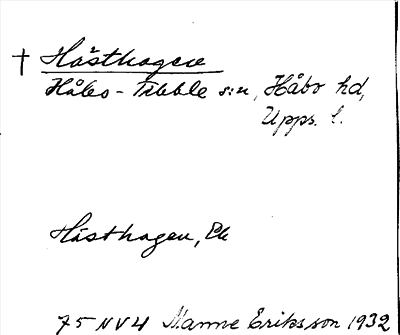 † Hästhagen
Håbo-Tibble s:n, Håbo hd,
Upps. l.
Hästhagen, Ek
75 NV4 Manne Eriksson 1932